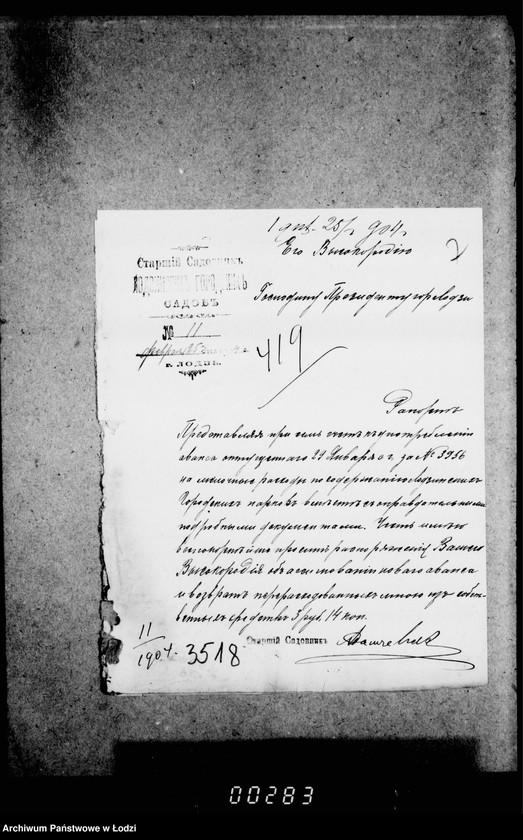 904 г.
Его Высокородію
Старшій Садовникъ
ЛОДЗИНСКИХЪ ГОРОДСКИХЪ
САДОВЪ
Господину Президенту города
№ 11
г. ЛОДЗЬ.
419
Рапортъ
Представляя при семъ счетъ къ употребленію
аванса отпущеннаго 29 Января с. г. за № 3956
на мелочные расходы по содержанію Лодзинскихъ
Городскихъ парковъ вмѣстѣ съ оправдательными
подробными документами. Честь имѣю
просить распоряженія Вашего
Высокородія объ ассигнованіи новаго аванса
и возвратъ перерасходованныхъ мною изъ собст-
венныхъ средствъ 5 руб. 14 коп.
Старшій Садовникъ
11
1904. 3518
00283
Archiwum Państwowe w Łodzi